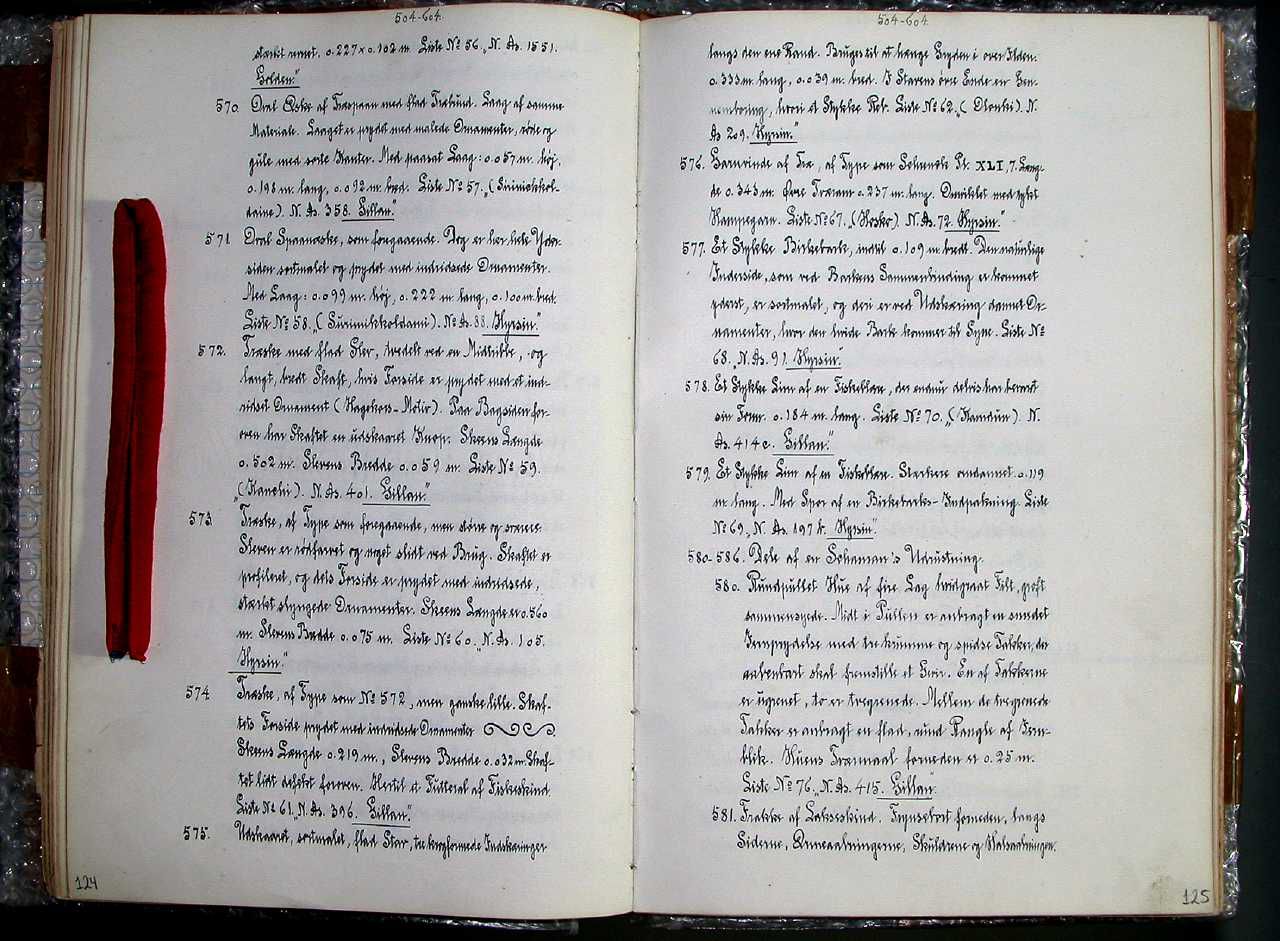 504-604.
stærkt revnet. 0.227 x 0.102 m. Liste № 56. „N. As. 1551.
Golden."
570. Oval Æske af Træspaan med flad Træbund. Laag af samme
Materiale. Laaget er prydet med malede Ornamenter, røde og
gule med sorte Kanter. Med paasat Laag: 0.057 m. høj,
0.198 m. lang, 0.092 m. bred. Liste № 57. „(
). N. As. 358. Gillan."
571. Oval Spaanæske, som foregaaende. Dog er her hele Yder-
siden sortmalet og prydet med indridsede Ornamenter.
Med Laag: 0.099 m. høj, 0.222 m. lang, 0.100 m. bred.
Liste № 58. „(Surimikkoldami). N. As. 88. Hyrsin."
572. Træske med flad Slev, tvedelt ved en Midtribbe, og
langt, bredt Skaft, hvis Forside er prydet med et ind-
ridset Ornament (Hagekors-Motiv). Paa Bagsiden for-
oven har Skaftet en udskaaret Knop. Skeens Længde
0.502 m. Slevens Bredde 0.059 m. Liste № 59.
„(Kanchi). N. As. 401. Gillan."
573. Træske, af Type som foregaaende, men større og sværere.
Sleven er rødfarvet og noget slidt ved Brug. Skaftet er
profileret, og dets Forside er prydet med indridsede,
stærkt slyngede Ornamenter. Skeens Længde er 0.560
m. Slevens Bredde 0.075 m. Liste № 60. „N. As. 105.
Hyrsin."
574. Træske, af Type som № 572, men ganske lille. Skaf-
tets Forside prydet med indridsede Ornamenter
Skeens Længde 0.219 m., Slevens Bredde 0.032 m. Skaf-
tet lidt defekt foroven. Hertil et Futteral af Fiskeskind.
Liste № 61. „N. As. 396. Gillan."
575. Udskaaret, sortmalet, flad Stav, tre krogformede Indskæringer
124
504-604.
langs den ene Rand. Bruges til at hænge Gryden i over Ilden.
0.333 m. lang, 0.039 m. bred. I Stavens øvre Ende en Gen-
nemboring, hvori et Stykke Reb. Liste № 62. „(Olonki). N.
As 209. Hyrsin."
576. Garnvinde af Træ, af Type som Schrenck Pl. XLI, 7. Læng-
de 0.343 m. Øvre Tværarm 0.237 m. lang. Omviklet med tykt
Hampegarn. Liste № 67. „(Hosko). N. As. 72. Hyrsin."
577. Et Stykke Birkebark, indtil 0.109 m. bredt. Den naturlige
Inderside, som ved Barkens Sammenbinding er kommet
yderst, er sortmalet, og deri er ved Udskæring dannet Or-
namenter, hvor den hvide Bark kommer til Syne. Liste №
68. „N. As. 91. Hyrsin."
578. Et Stykke Lim af en Fiskeblære, der endnu delvis har bevaret
sin Form. 0.184 m. lang. Liste № 70. „(Kamdun). N.
As. 414 c. Gillan."
579. Et Stykke Lim af en Fiskeblære. Stærkere omdannet. 0.119
m. lang. Med Spor af en Birkebarks-Indpakning. Liste
№ 69. „N. As. 197 k. Hyrsin."
580-586. Dele af en Schaman's Udrustning.
580. Rundpullet Hue af fire Lag hvidgraat Filt, groft
sammensyede. Midt i Pullen er anbragt en smedet
Jernprydelse med tre krumme og spidse Takker, der
aabenbart skal fremstille et Gevir. En af Takkerne
er ugrenet, to er tregrenede. Mellem de tregrenede
Takker er anbragt en flad, rund Rangle af Jern-
blik. Huens Tværmaal forneden er 0.25 m.
Liste № 76. „N. As. 415. Gillan."
581. Frakke af Lakseskind. Frynsebræt forneden, langs
Siderne, Ærmeaabningerne, Skuldrene og Halsaabningen.
125